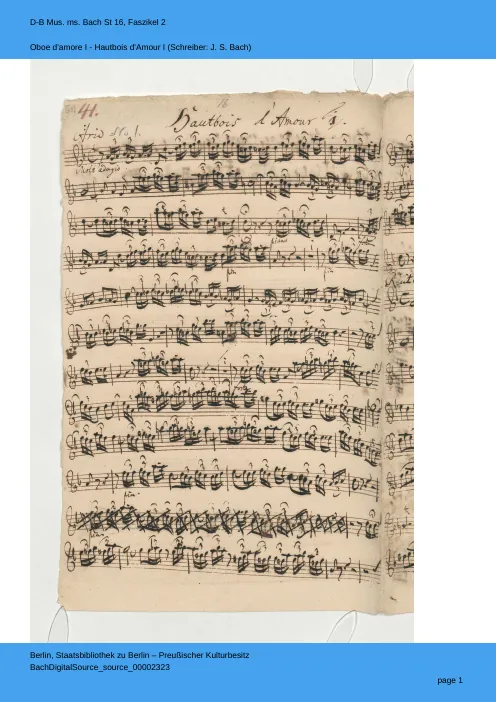 D-B Mus. ms. Bach St 16, Faszikel 2
Oboe d'amore I - Hautbois d'Amour I (Schreiber: J. S. Bach)
41.
Hautbois d'Amour 1.
Aria
molt' adagio
piano
Berlin, Staatsbibliothek zu Berlin – Preußischer Kulturbesitz
BachDigitalSource_source_00002323
page 1